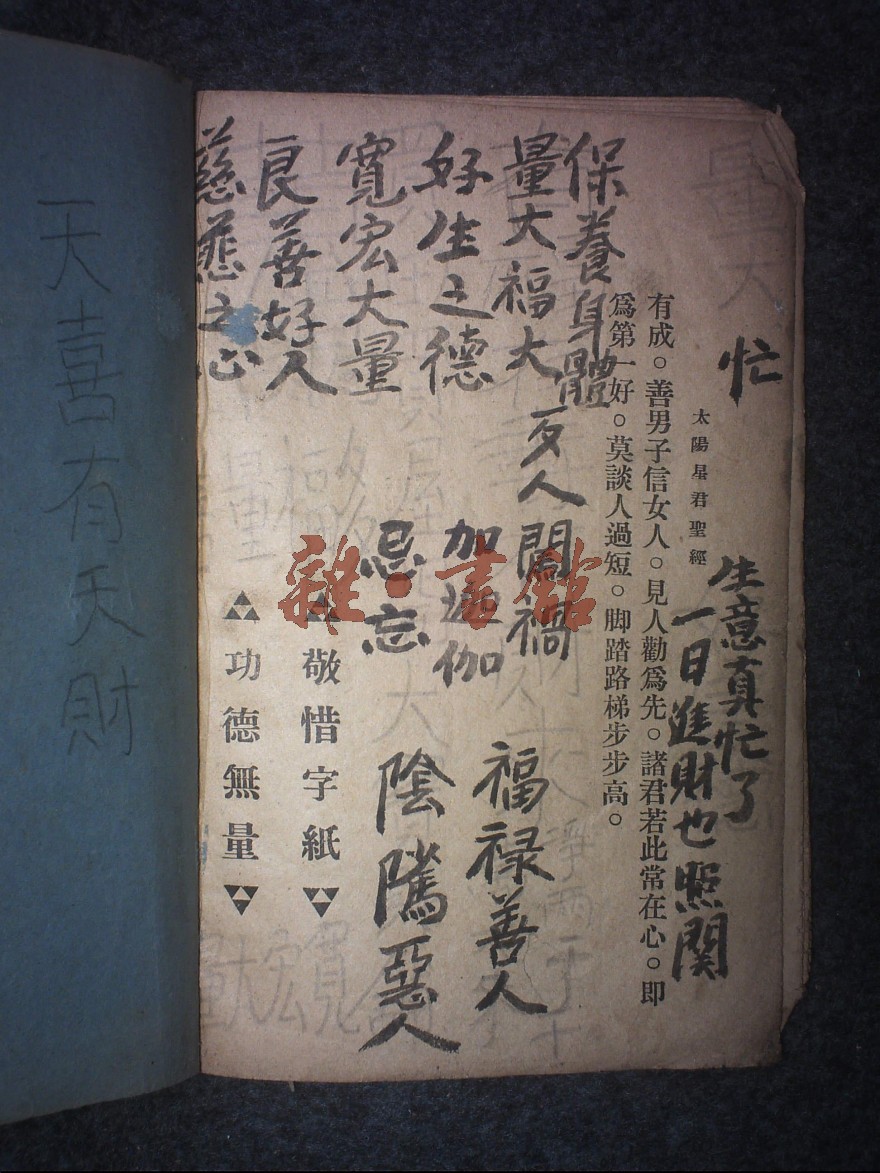 忙
生意真忙了
一日進財也照関
太陽星君聖經
有成。善男子信女人。見人勸爲先。諸君若此常在心。即
爲第一好。莫談人過短。脚踏路梯步步高。
保養身體
量大福大
好生之德
寬宏大量
良善好人
慈悲之心
歹人闖禍
加瑜伽
忌忘
福禄善人
陰隲惡人
▲敬惜字紙▼
▲功德無量▼
雜·書館
天喜有天財